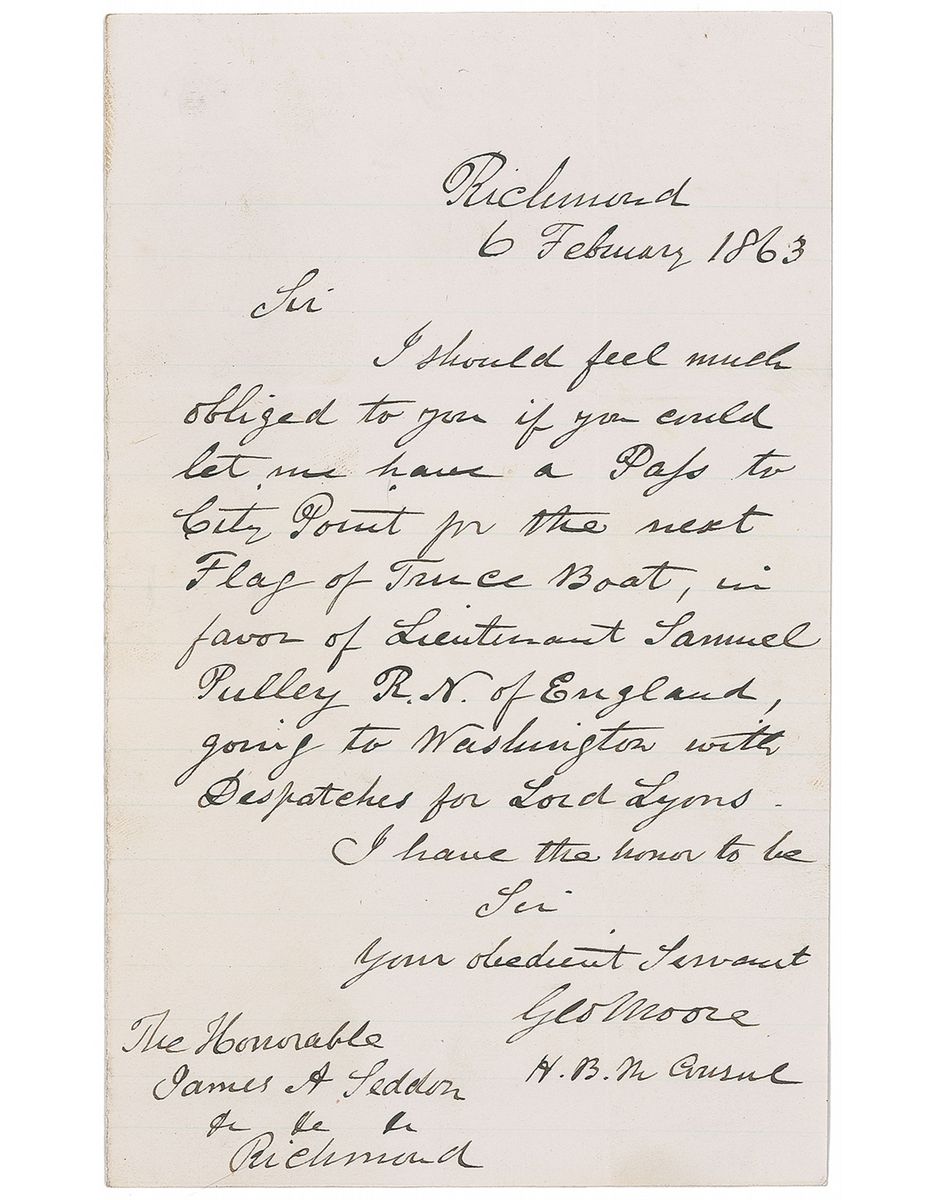 Richmond
6 February 1863
Sir
I should feel much
obliged to you if you could
let me have a Paſs to
City Point for the next
Flag of Truce Boat, in
favor of Lieutenant Samuel
Pulley R.N. of England,
going to Washington with
Despatches for Lord Lyons.
I have the honor to be
Sir
Your obedient Servant
Geo Moore
H. B. M Consul
The Honorable
James A Seddon
&c &c &c
Richmond